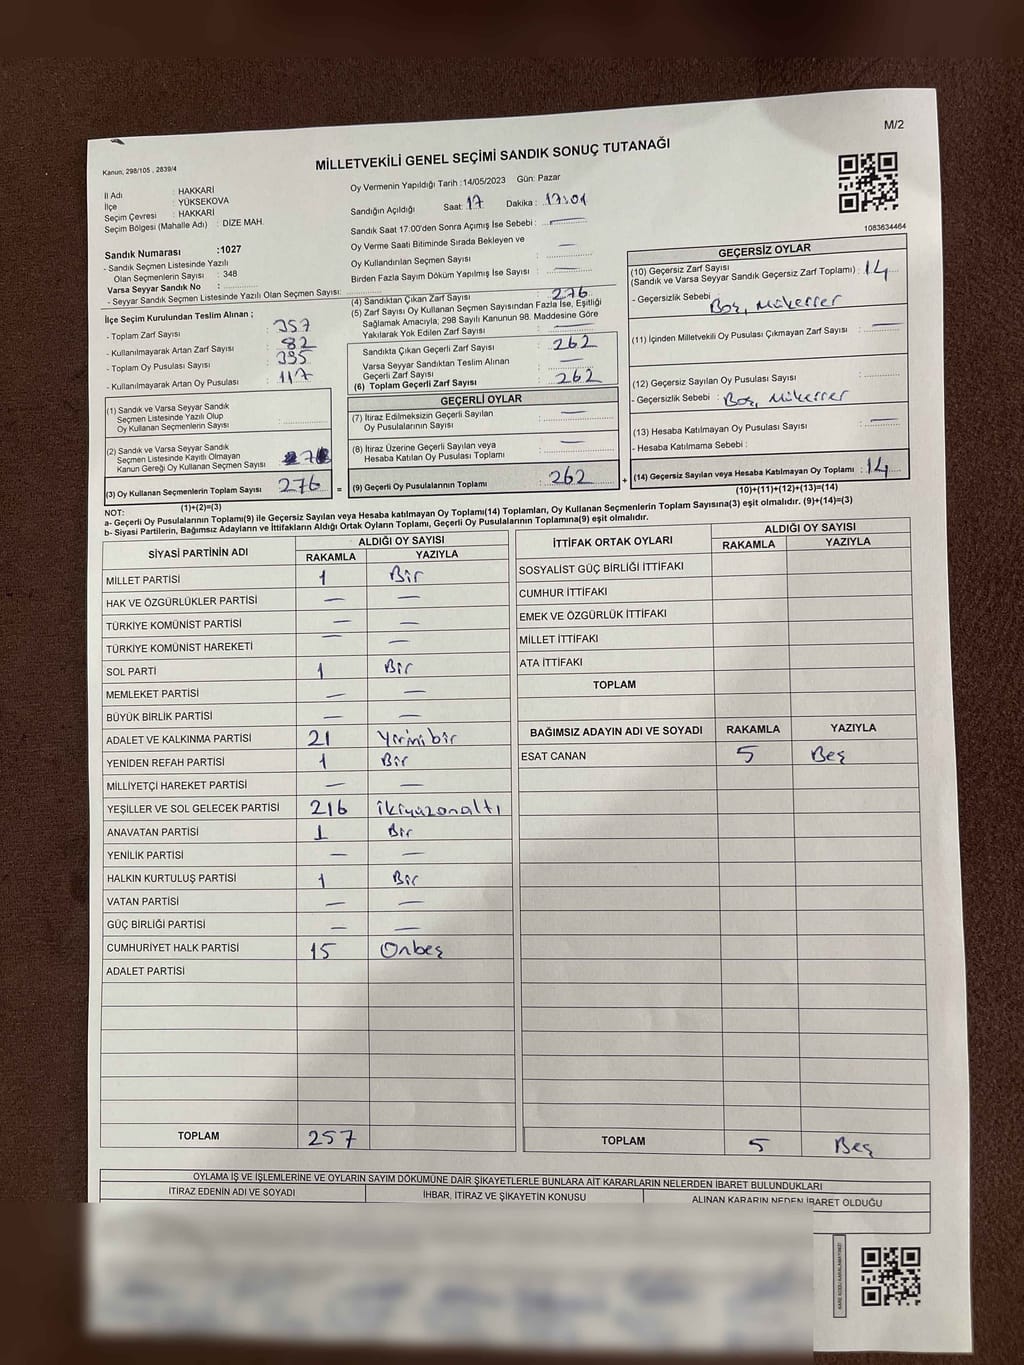 M/2
Kanun, 298/105 , 2839/4
MİLLETVEKİLİ GENEL SEÇİMİ SANDIK SONUÇ TUTANAĞI
İl Adı : HAKKARİ
İlçe : YÜKSEKOVA
Seçim Çevresi : HAKKARİ
Seçim Bölgesi (Mahalle Adı) : DİZE MAH.
Sandık Numarası :1027
- Sandık Seçmen Listesinde Yazılı
Olan Seçmenlerin Sayısı : 348
Varsa Seyyar Sandık No :
- Seyyar Sandık Seçmen Listesinde Yazılı Olan Seçmen Sayısı:
Oy Vermenin Yapıldığı Tarih :14/05/2023 Gün: Pazar
Sandığın Açıldığı Saat: 17 Dakika : 17:01
Sandık Saat 17:00'den Sonra Açılmış İse Sebebi : —
Oy Verme Saati Bitiminde Sırada Bekleyen ve
Oy Kullandırılan Seçmen Sayısı : —
Birden Fazla Sayım Döküm Yapılmış İse Sayısı : —
1083634464
İlçe Seçim Kurulundan Teslim Alınan ;
- Toplam Zarf Sayısı : 357
- Kullanılmayarak Artan Zarf Sayısı : 82
- Toplam Oy Pusulası Sayısı : 395
- Kullanılmayarak Artan Oy Pusulası : 117
(1) Sandık ve Varsa Seyyar Sandık
Seçmen Listesinde Yazılı Olup
Oy Kullanan Seçmenlerin Sayısı :
(2) Sandık ve Varsa Seyyar Sandık
Seçmen Listesinde Kayıtlı Olmayan
Kanun Gereği Oy Kullanan Seçmen Sayısı
(3) Oy Kullanan Seçmenlerin Toplam Sayısı : 276
(1)+(2)=(3)
(4) Sandıktan Çıkan Zarf Sayısı : 276
(5) Zarf Sayısı Oy Kullanan Seçmen Sayısından Fazla İse, Eşitliği
Sağlamak Amacıyla; 298 Sayılı Kanunun 98. Maddesine Göre
Yakılarak Yok Edilen Zarf Sayısı : —
Sandıkta Çıkan Geçerli Zarf Sayısı : 262
Varsa Seyyar Sandıktan Teslim Alınan
Geçerli Zarf Sayısı : —
(6) Toplam Geçerli Zarf Sayısı : 262
GEÇERLİ OYLAR
(7) İtiraz Edilmeksizin Geçerli Sayılan
Oy Pusulalarının Sayısı : —
(8) İtiraz Üzerine Geçerli Sayılan veya
Hesaba Katılan Oy Pusulası Toplamı : —
= (9) Geçerli Oy Pusulalarının Toplamı : 262
GEÇERSİZ OYLAR
(10) Geçersiz Zarf Sayısı
(Sandık ve Varsa Seyyar Sandık Geçersiz Zarf Toplamı) : 14
- Geçersizlik Sebebi : Boş, Mükerrer
(11) İçinden Milletvekili Oy Pusulası Çıkmayan Zarf Sayısı : —
(12) Geçersiz Sayılan Oy Pusulası Sayısı :
- Geçersizlik Sebebi : Boş, Mükerrer
(13) Hesaba Katılmayan Oy Pusulası Sayısı : —
- Hesaba Katılmama Sebebi :
+ (14) Geçersiz Sayılan veya Hesaba Katılmayan Oy Toplamı : 14
(10)+(11)+(12)+(13)=(14)
NOT:
a- Geçerli Oy Pusulalarının Toplamı(9) ile Geçersiz Sayılan veya Hesaba katılmayan Oy Toplamı(14) Toplamları, Oy Kullanan Seçmenlerin Toplam Sayısına(3) eşit olmalıdır. (9)+(14)=(3)
b- Siyasi Partilerin, Bağımsız Adayların ve İttifakların Aldığı Ortak Oyların Toplamı, Geçerli Oy Pusulalarının Toplamına(9) eşit olmalıdır.
SİYASİ PARTİNİN ADI ALDIĞI OY SAYISI
RAKAMLA YAZIYLA
MİLLET PARTİSİ 1 Bir
HAK VE ÖZGÜRLÜKLER PARTİSİ — —
TÜRKİYE KOMÜNİST PARTİSİ — —
TÜRKİYE KOMÜNİST HAREKETİ — —
SOL PARTİ 1 Bir
MEMLEKET PARTİSİ — —
BÜYÜK BİRLİK PARTİSİ — —
ADALET VE KALKINMA PARTİSİ 21 Yirmibir
YENİDEN REFAH PARTİSİ 1 Bir
MİLLİYETÇİ HAREKET PARTİSİ — —
YEŞİLLER VE SOL GELECEK PARTİSİ 216 ikiyüzonaltı
ANAVATAN PARTİSİ 1 Bir
YENİLİK PARTİSİ — —
HALKIN KURTULUŞ PARTİSİ 1 Bir
VATAN PARTİSİ — —
GÜÇ BİRLİĞİ PARTİSİ — —
CUMHURİYET HALK PARTİSİ 15 Onbeş
ADALET PARTİSİ
TOPLAM 257
İTTİFAK ORTAK OYLARI ALDIĞI OY SAYISI
RAKAMLA YAZIYLA
SOSYALİST GÜÇ BİRLİĞİ İTTİFAKI
CUMHUR İTTİFAKI
EMEK VE ÖZGÜRLÜK İTTİFAKI
MİLLET İTTİFAKI
ATA İTTİFAKI
TOPLAM
BAĞIMSIZ ADAYIN ADI VE SOYADI RAKAMLA YAZIYLA
ESAT CANAN 5 Beş
TOPLAM 5 Beş
OYLAMA İŞ VE İŞLEMLERİNE VE OYLARIN SAYIM DÖKÜMÜNE DAİR ŞİKAYETLERLE BUNLARA AİT KARARLARIN NELERDEN İBARET BULUNDUKLARI
İTİRAZ EDENİN ADI VE SOYADI İHBAR, İTİRAZ VE ŞİKAYETİN KONUSU ALINAN KARARIN NEDEN İBARET OLDUĞU